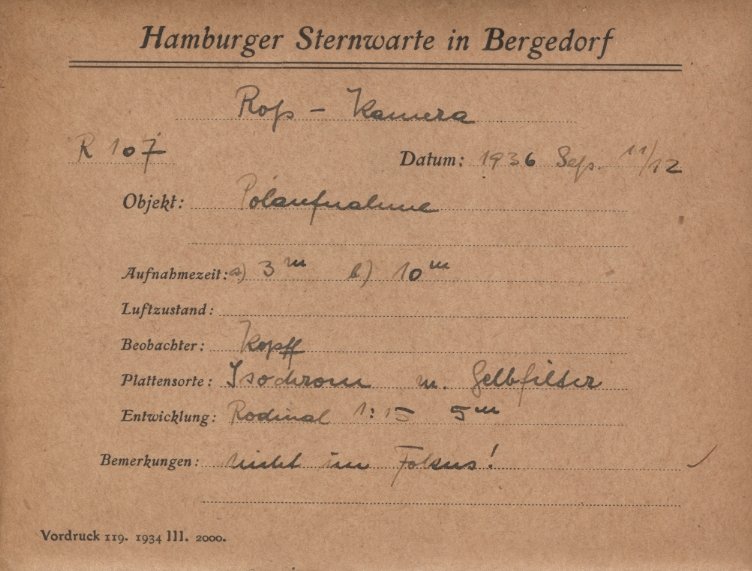 Hamburger Sternwarte in Bergedorf
Roß - Kamera
R 107 Datum: 1936 Sep. 11/12
Objekt: Polaufnahme
Aufnahmezeit: a) 3ᵐ b) 10ᵐ
Luftzustand:
Beobachter: Kopff
Plattensorte: Isochrom m. Gelbfilter
Entwicklung: Rodinal 1:15 5ᵐ
Bemerkungen: nicht im Fokus!
Vordruck 119. 1934 III. 2000.